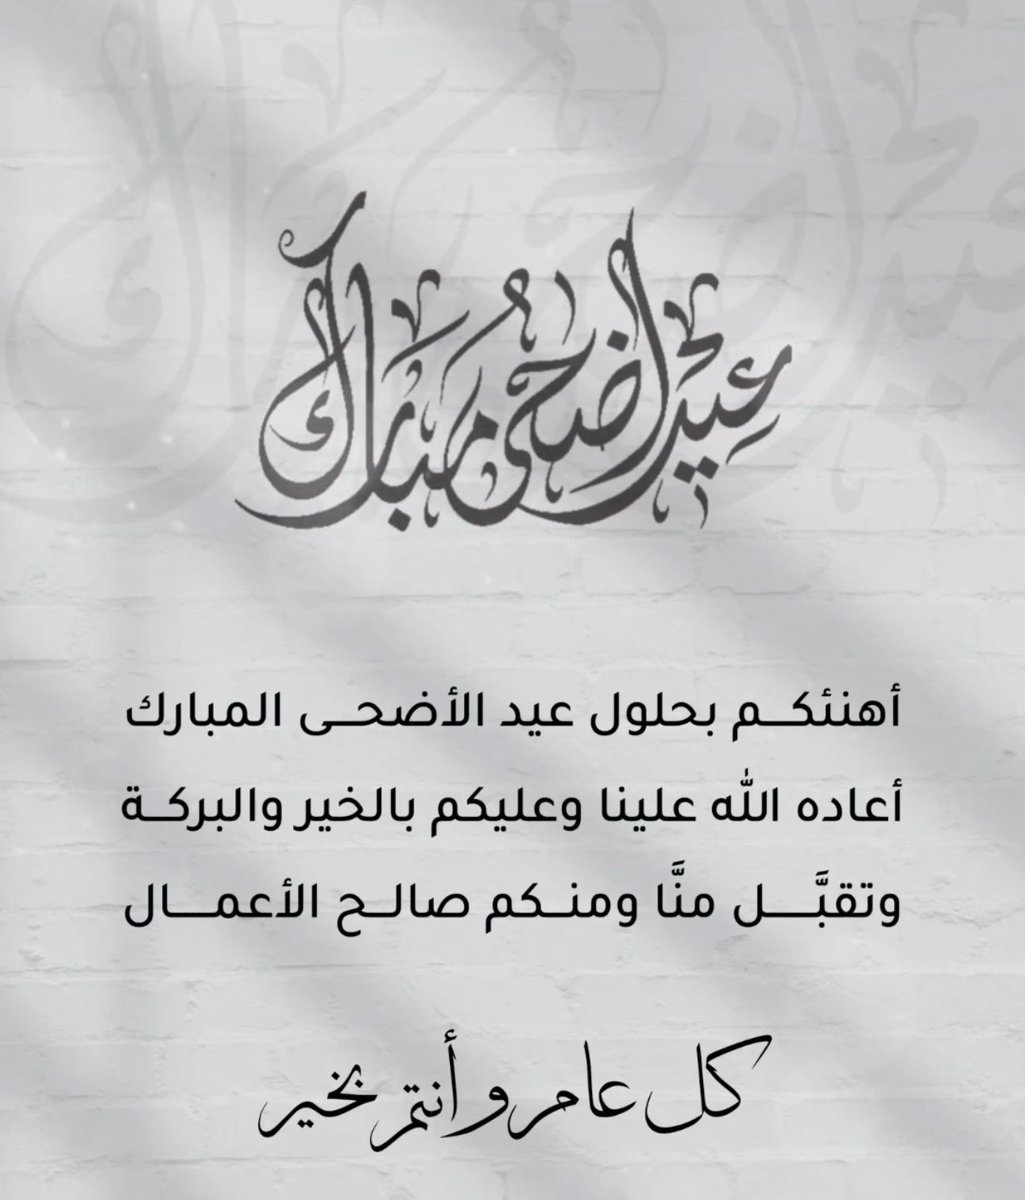 عيد أضحى مبارك
أهنئكم بحلول عيد الأضحى المبارك
أعاده الله علينا وعليكم بالخير والبركة
وتقبَّل منَّا ومنكم صالح الأعمال
كل عام وأنتم بخير